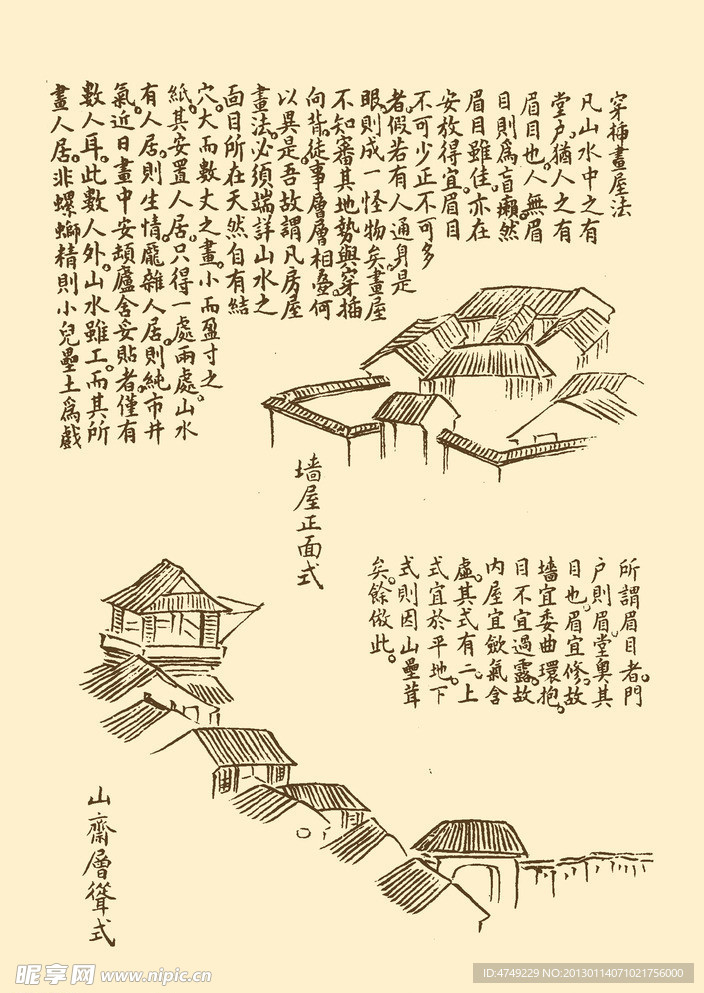 穿揷畫屋法
凡山水中之有
堂戶。猶人之有
眉目也。人無眉
目則爲盲癩。然
眉目雖佳。亦在
安放得宜。眉目
不可少正不可多
者。假若有人通身是
眼。則成一怪物矣。畫屋
不知審其地勢與穿揷
向背。徒事層層相壘。何
以異是。吾故謂凡房屋
畫法。必須端詳山水之
面目所在。天然自有結
穴。大而數丈之畫。小而盈寸之
紙。其安置人居。只得一處兩處。山水
有人居。則生情。龐雜人居。則純市井
氣。近日畫中安頓廬舍妥貼者。僅有
數人耳。此數人外。山水雖工。而其所
畫人居。非螺螄精則小兒壘土爲戲
墙屋正面式
所謂眉目者。門
戶則眉。堂奧其
目也。眉宜修。故
墻宜委曲環抱。
目不宜過露。故
內屋宜歛氣含
虛。其式有二。上
式宜於平地。下
式則因山壘茸
矣。餘倣此。
山齋層聳式
昵享网 www.nipic.cn
ID:4749229 NO:20130114071021756000